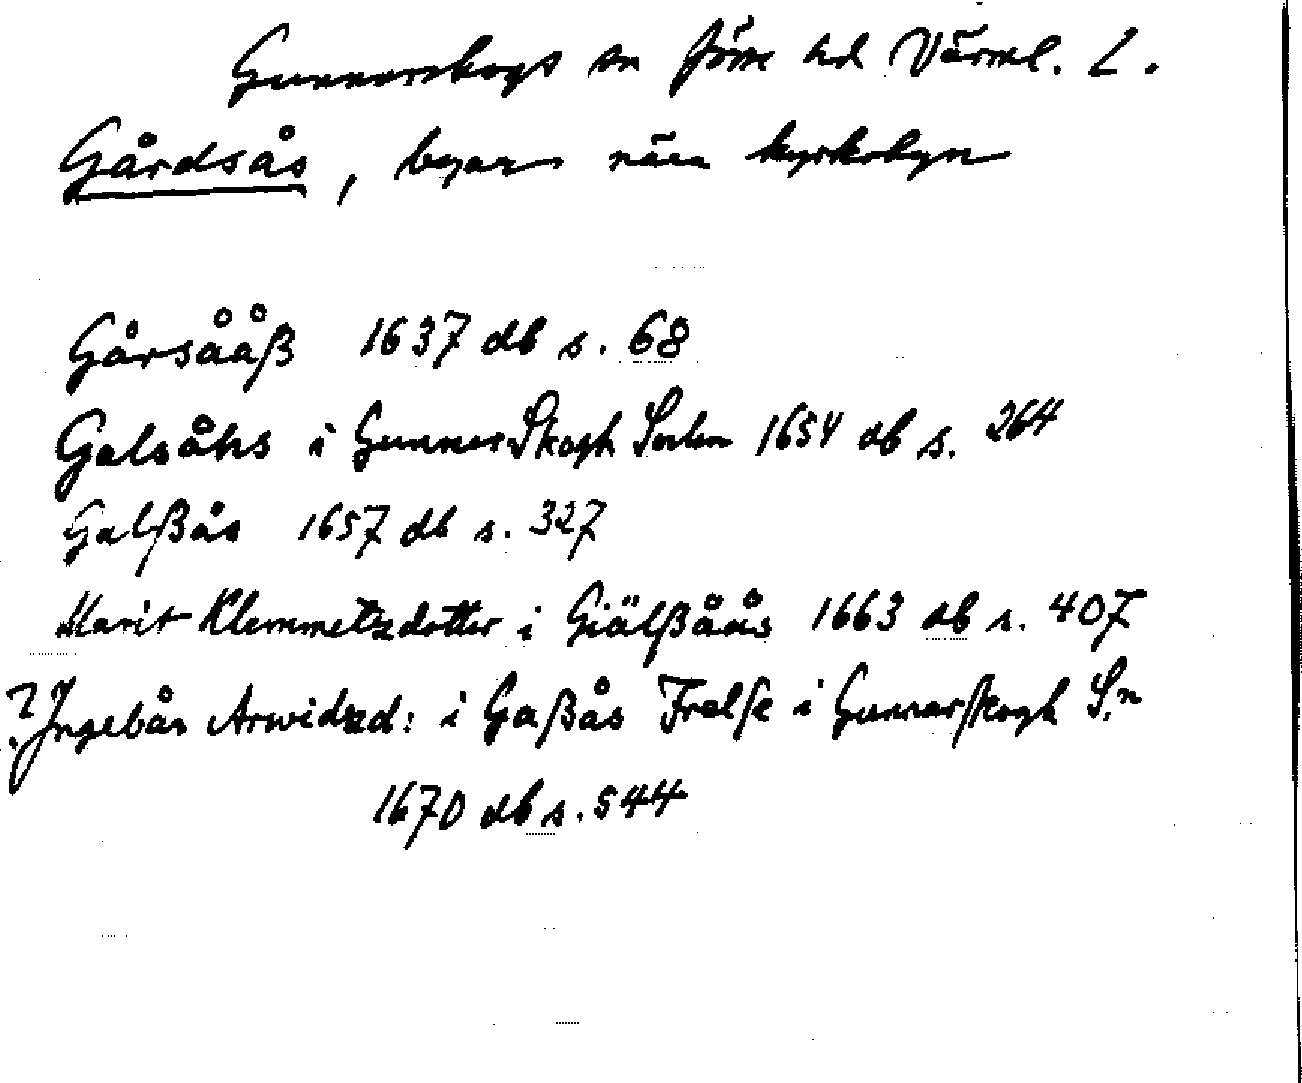 Gunnarskogs sn Jösse hd Värml. L.
Gårdsås, byar nära kyrkobyn
Gårsååß 1637 db s. 68
Galsåhs i GunnerSkogh Sochn 1654 db s. 264
Galßås 1657 db s. 327
Marit Klemmetzdotter i Giälßåås 1663 db s. 407
? Ingebår Arwidzd: i Gaßås Frelse i Gunnarskogh S:n
1670 db s. 544